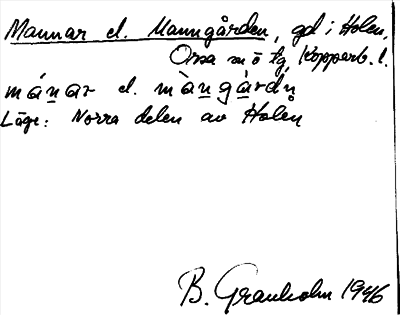 Mannar el. Manngården, gd i Holen,
Orsa sn ö tg, Kopparb. l.
mánar el. màngàrdn̥
Läge: Norra delen av Holen
B. Granholm 1946